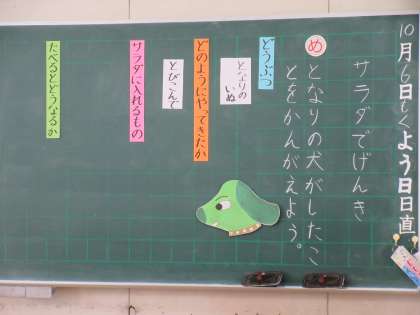 10月6日もくよう日日直
サラダでげんき
め
となりの犬がしたこ
とをかんがえよう。
どうぶつ
となりの
いぬ
どのようにやってきたか
とびこんで
サラダに入れるもの
たべるとどうなるか